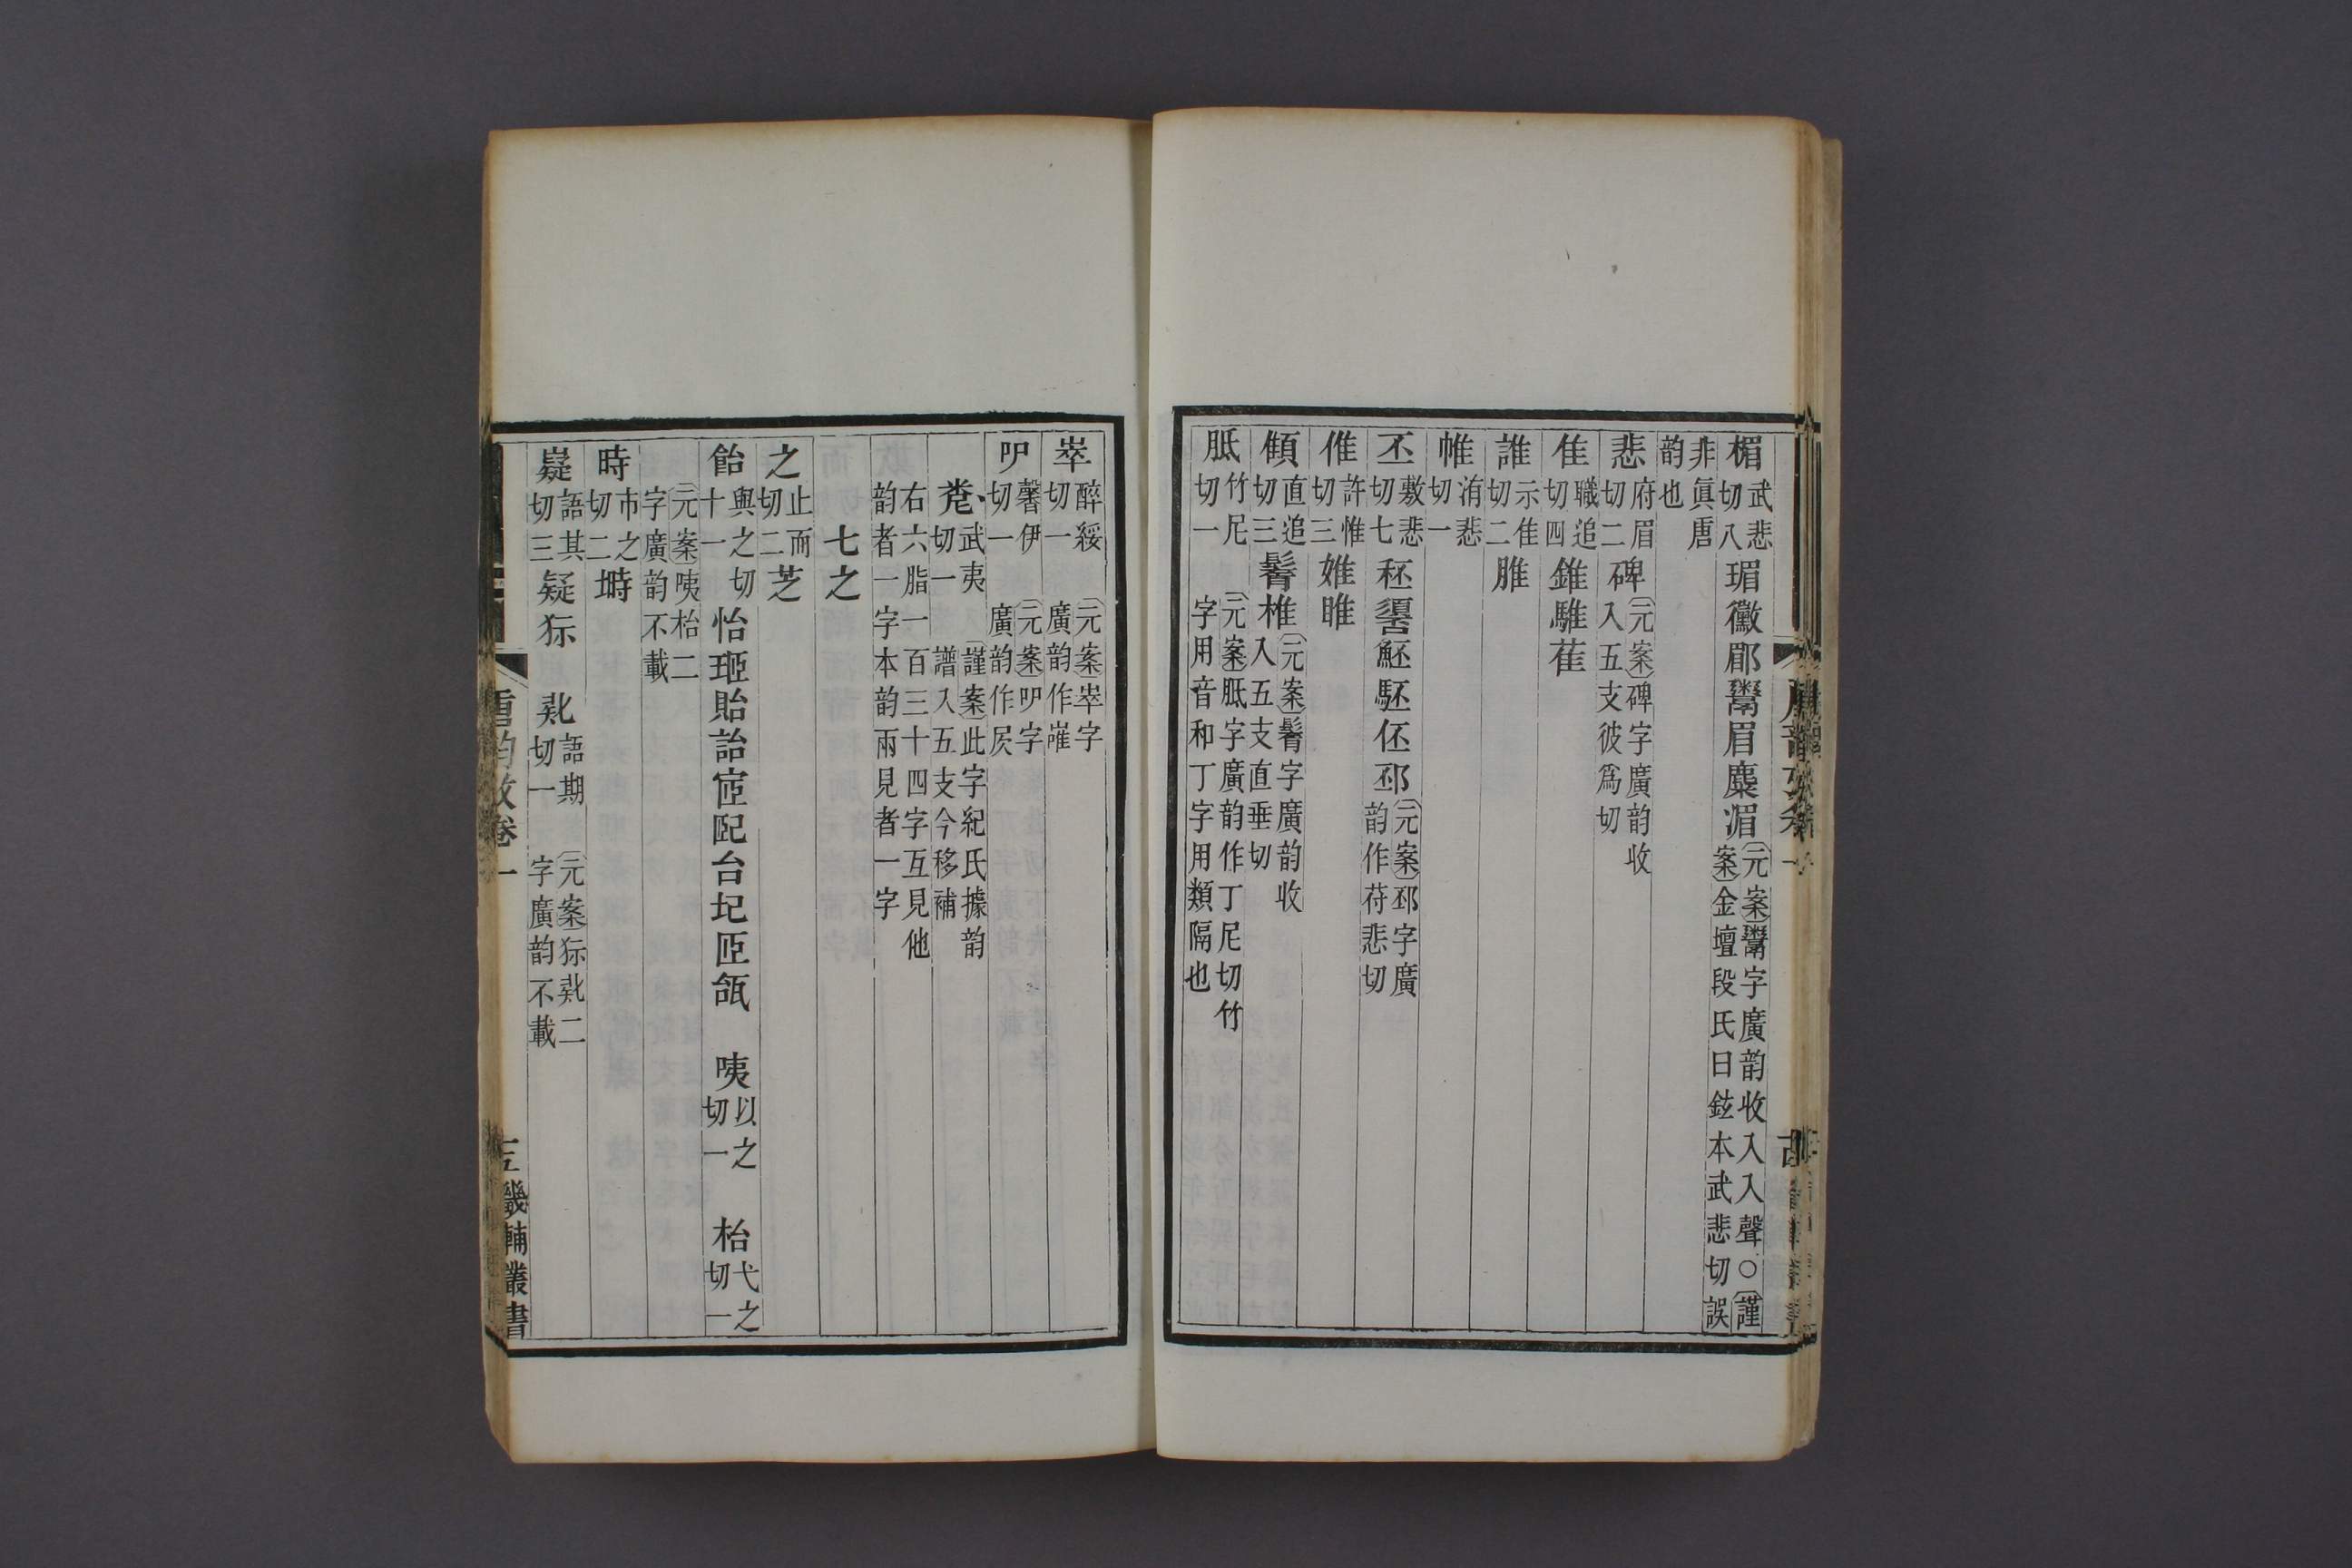 楣武悲切八瑂黴郿鬻眉麋湄元案鬻字廣韵收入入聲○謹案金壇段氏曰鉉本武悲切誤
非眞唐韵也
悲府眉切二碑元案碑字廣韵收入五支彼爲切
隹職追切四錐騅萑
誰示隹切二脽
帷洧悲切一
丕敷悲切七秠𪓬魾駓伾邳元案邳字廣韵作苻悲切
倠許惟切三婎睢
頧直追切三鬌椎元案鬌字廣韵收入五支直垂切
胝竹尼切一元案胝字廣韵作丁尼切竹字用音和丁字用類隔也
崒醉綏切一元案崒字廣韵作嶉
吚馨伊切一元案吚字廣韵作㞒
武夷切一謹案此字紀氏據韵譜入五支今移補
右六脂一百三十四字互見他韵者一字本韵兩見者一字
七之
之止而切二芝
飴與之切十一怡瓵貽詒宧台圯匝瓵 咦以之切一 枱弋之切一
元案咦枱二字廣韵不載
時市之切二塒
嶷語其切三疑狋 㹞語期切一元案狋㹞二字廣韵不載
唐韵攷卷一
畿輔叢書